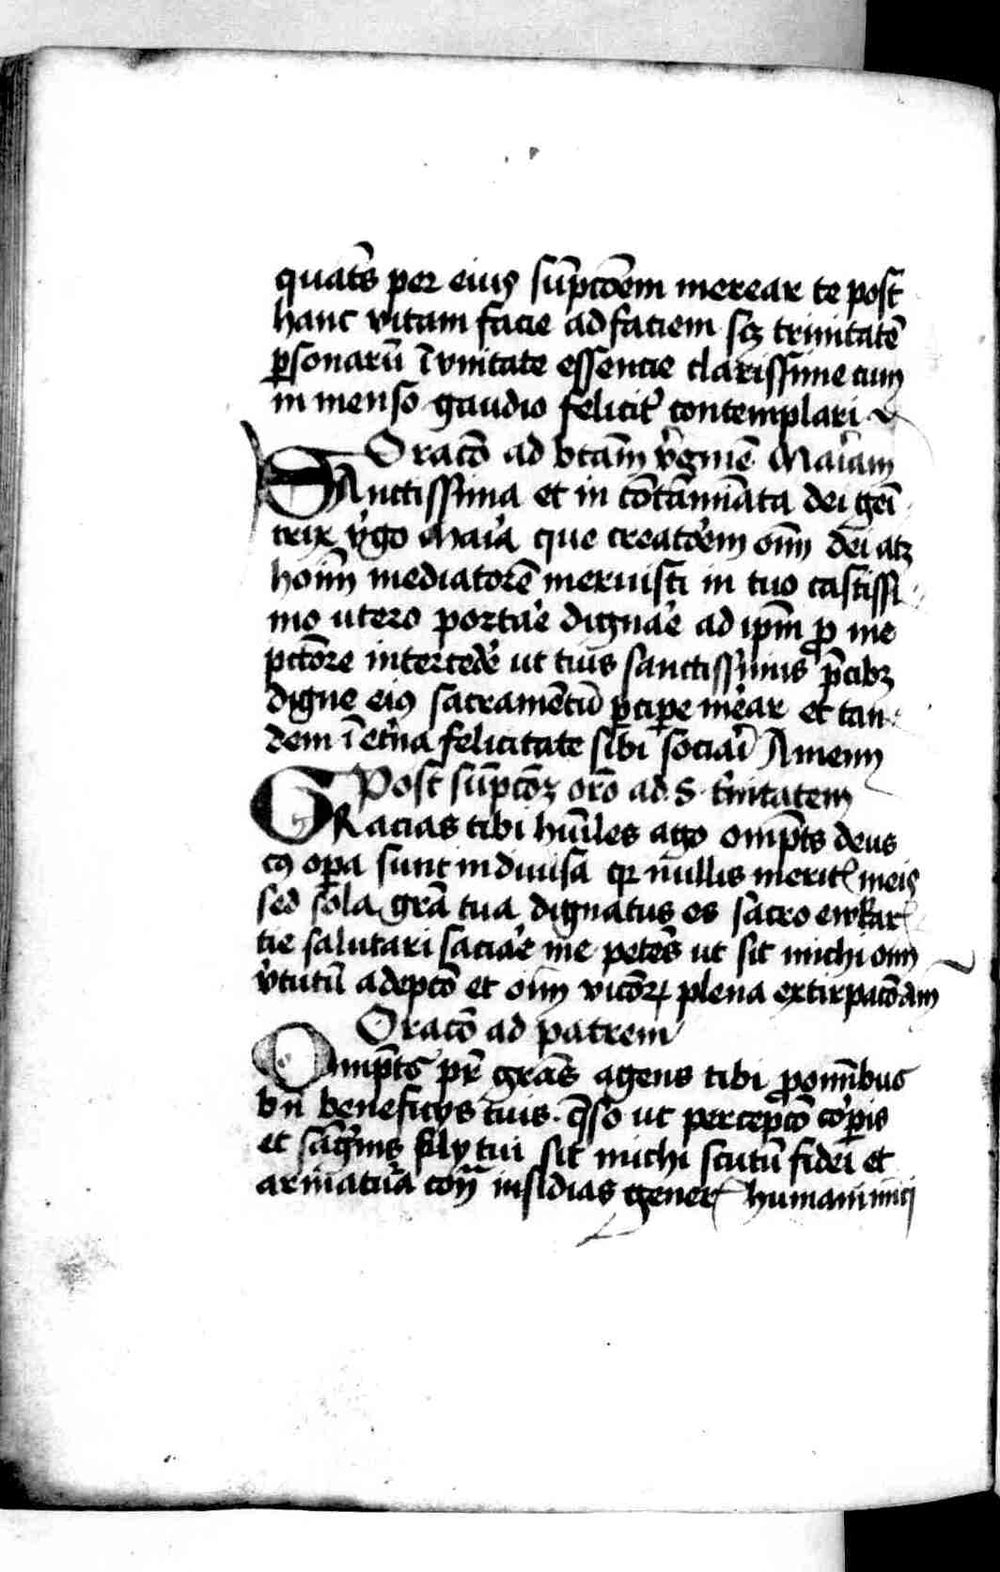 quatēs per eius sūpcōem merear te post
hanc vitam facie ad faciem scꝫ trinitatē
ꝑsonarū ī vnitate essencie clarissime cum
in menso gaudio felicitr̄ contemplari
Oracō ad btām v̓ginē Mariam
SAnctissima et in cōtāminata dei gēi
trix v̓go Maria que creatōem oīm dei atꝫ
hoīm mediatorē meruisti in tuo castissi
mo utero portare dignare ad ipm̄ ꝓ me
pctōre intercedē ut tuis sanctissimis p̄cibꝫ
digne eiꝰ sacramētū ꝑcipe merear et tan
dem ī eterna felicitate sibi sociari Amen
Post sūpcōꝫ orō ad S trinitatem
GRacias tibi hūiles ago omīpts deus
cꝰ oꝑa sunt indiuisa qr nullis meritꝭ meis
sed sola grā tua dignatus es sacro ewkarꝭ
tie salutari saciare me petēs ut sit michi oīm
v̓tutū adepcō et oīm vicōꝝ plena extirpacō am
Oracō ad patrem
Omīpts pr̄ grās agens tibi ꝓ omībus
bn̄ beneficijs tuis qso ut percepcō corꝑis
et sāgnis filij tui sit michi scutū fidei et
armatura con̄ insidias generꝭ humani inīci